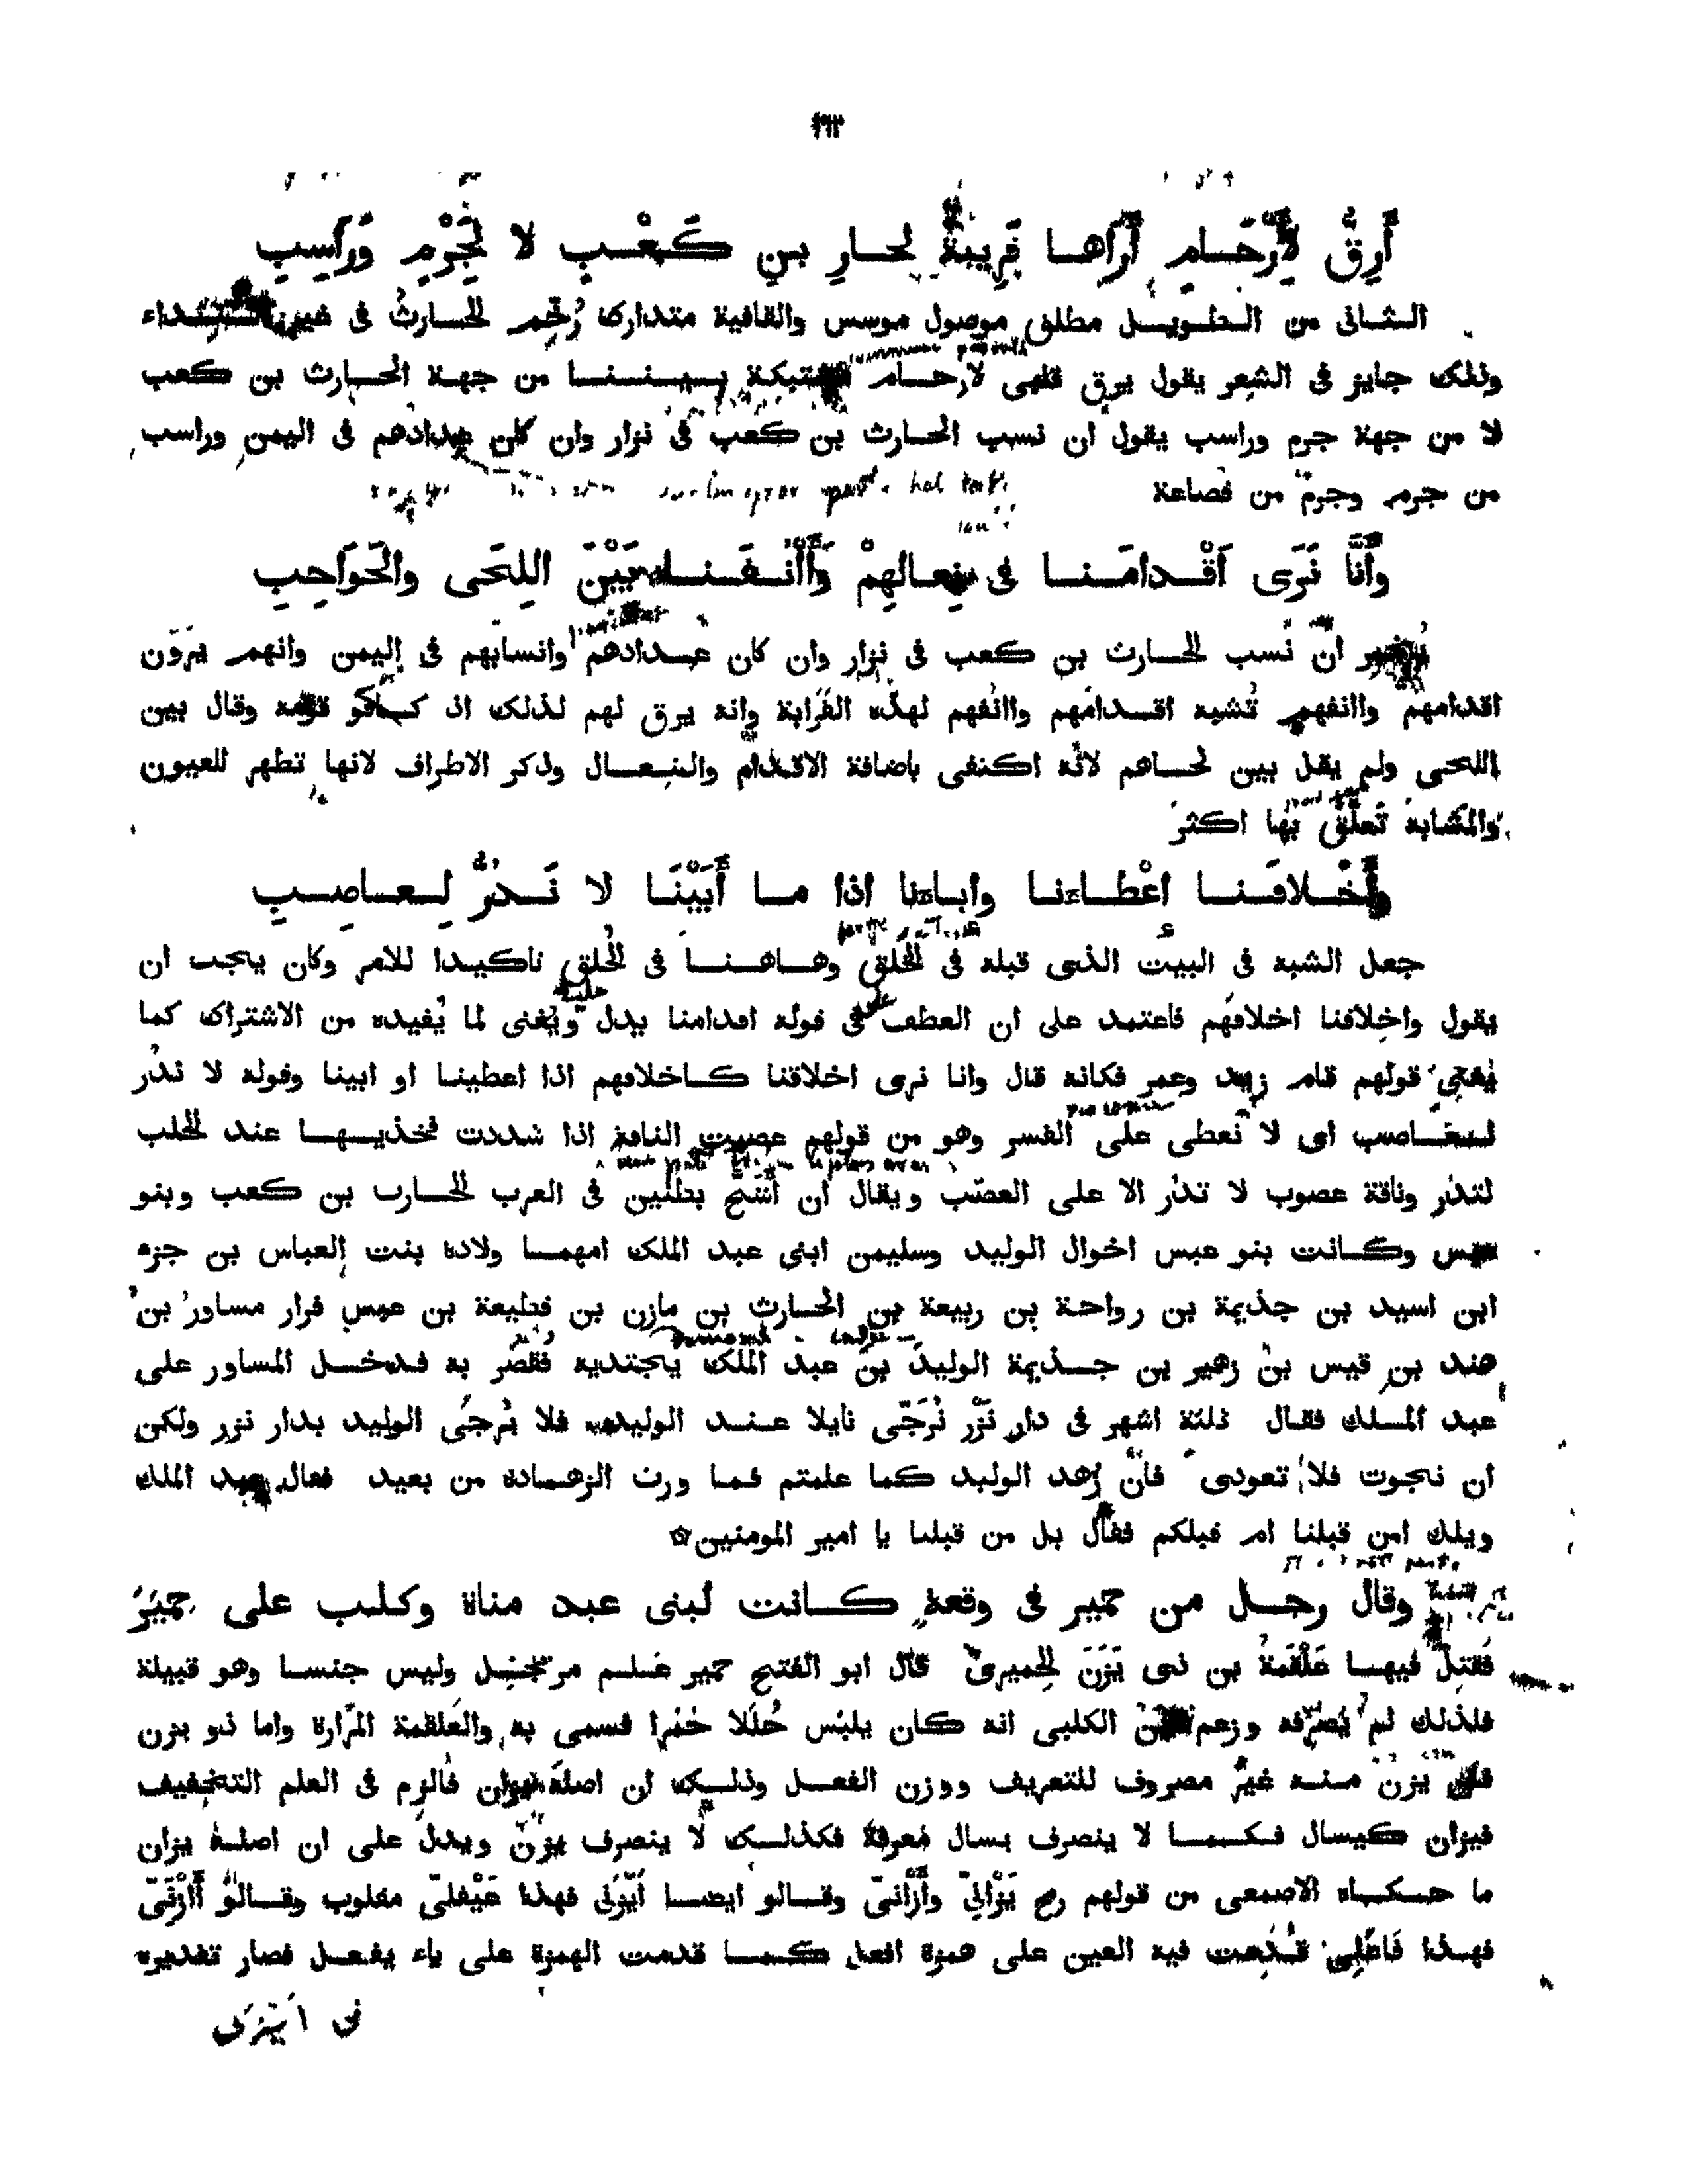 ١٦٣
أَرِقُّ لِأَرْحَامٍ أَرَاها قَرِيبَةً لحارِ بنِ كَعْبٍ لا لِجَرْمٍ وَرَاسِبِ
الثانى من الطويل مطلق موصول موسس والقافية متدارك رُخّم الحارثُ فى غير النداء
وذلك جايز فى الشعر يقول يرق قلبى لارحام مشتبكة بيننا من جهة الحارث بن كعب
لا من جهة جرم وراسب يقول ان نسب الحارث بن كعب فى نزار وان كان عدادهم فى اليمن وراسب
من جرم وجرم من قضاعة
وأَنَّا نَرَى أَقْدامَنا فى نِعالِهِمْ وَأَانُفَنا بَيْنَ اللِحَى والحَوَاجِبِ
ان نَسب الحارث بن كعب فى نزار وان كان عدادهم وانسابهم فى اليمن وانهم يرون
اقدامهم واانفهم تُشبه اقدامَهم واانُفهم لهذه القَرابة وانه يرق لهم لذلك اذ كانو قومه وقال بين
اللحى ولم يقل بين لحاهم لانّه اكتفى باضافة الاقدام والنعال وذكر الاطراف لانها تظهر للعيون
والمشابهَ تَعلُّقُ بها اكثر
وأَخْلاقَنا إعْطاءَنا واباءَنا اذا ما أَبَيْنَا لا نَدُرُّ لعاصِبِ
جعل الشبه فى البيت الذى قبله فى الخَلق وهاهنا فى الخُلق تاكيدا للامر وكان يجب ان
يقول واخلاقنا اخلاقهم فاعتمد على ان العطف فى قوله اقدامنا يدل ويُغنى لما يُفيده من الاشتراك كما
يُغنى قولهم قام زيد وعمر فكانه قال وانا نرى اخلاقنا كاخلاقهم اذا اعطينا او ابينا وقوله لا ندُر
لعاصب اى لا نعطى على القسر وهو من قولهم عصبت الناقة اذا شددت فخذيها عند الحلب
لتدر وناقة عصوب لا تدُر الا على العصب ويقال ان بطنين فى العرب الحارث بن كعب وبنو
عبس وكانت بنو عبس اخوال الوليد وسليمن ابنى عبد الملك امهما ولادة بنت العباس بن جزء
ابن اسيد بن جذيمة بن رواحة بن ربيعة بن الحارث بن مازن بن قطيعة بن عبس فزار مساور بن
هند بن قيس بن زهير بن جذيمة الوليدَ بن عبد الملك يجتديه فقصّر به فدخل المساور على
عبد الملك فقال ثلثة اشهر فى دار نَزْر نُرَجّى نايلا عند الوليد فلا يُرجَى الوليد بدار نزر ولكن
ان نجوت فلا تعودى فانّ زهد الوليد كما علمتم فما ورث الزهادة من بعيد فقال عبد الملك
ويلك امن قبلنا ام قبلكم فقال بل من قبلنا يا امير المومنين ✩
وقال رجل من حمير فى وقعة كانت لبنى عبد مناة وكلب على حمير
فَقُتل فيها عَلْقَمةُ بن ذى يَزَنَ الحِميرىّ قال ابو الفتح حمير علم مرتجل وليس جنسا وهو قبيلة
فلذلك لم يَصرِفه وزعم ابن الكلبى انه كان يلبَس حُلَلا حُمْرا فسمى به والعلقمة المَرارة واما ذو يزن
فان يزن منه غيرُ مصروف للتعريف ووزن الفعل وذلك ان اصله يزان فالزم فى العلم التخفيف
فيزان كيسال فكما لا ينصرف يسال معرفة فكذلك لا ينصرف يزن ويدل على ان اصله يزان
ما حكاه الاصمعى من قولهم رمح يَزْانِىّ وأَزَانىّ وقالو ايضا أَيْزَنِى فهذا عَيْفلىّ مقلوب وقالُو أَازَنِىّ
فهذا قُدّمت فيه العين على همزة افعل كما قدمت الهمزة على ياء يفعل فصار تقديره